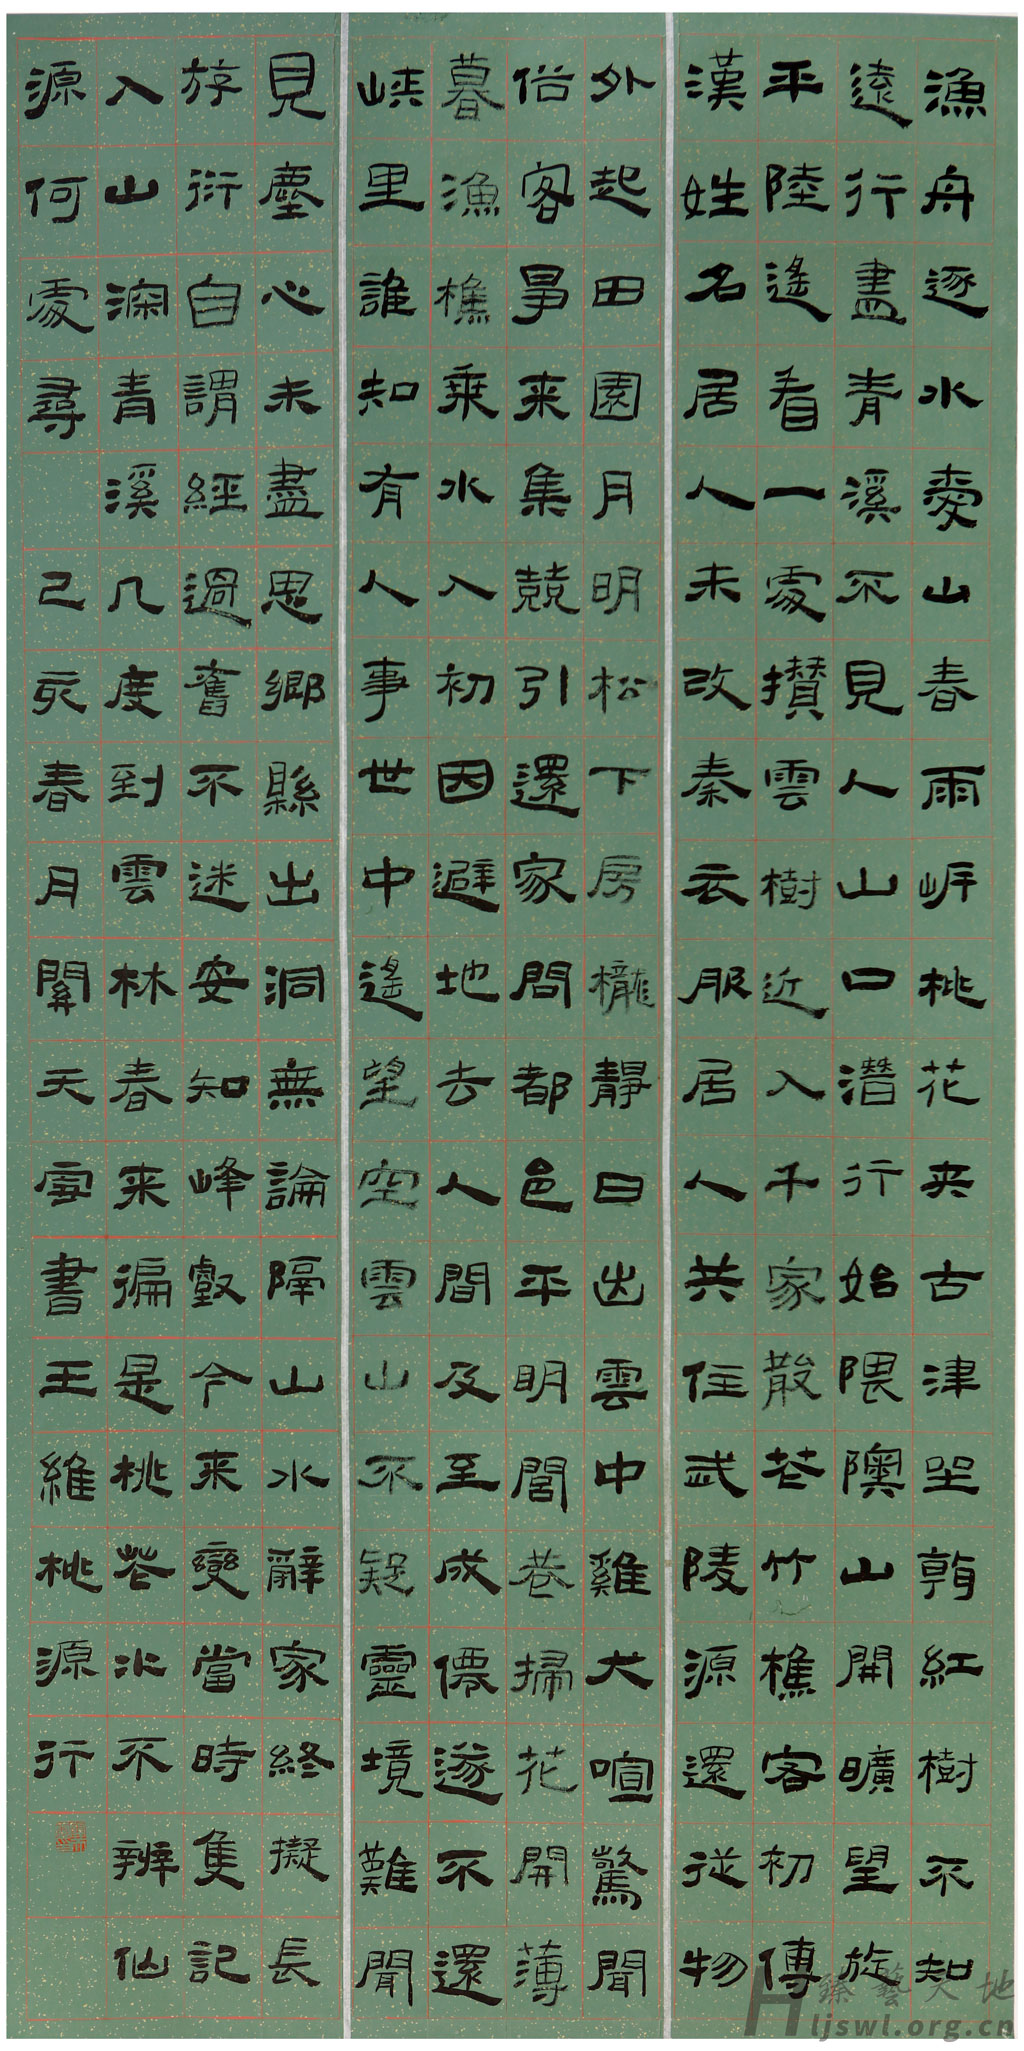 漁舟逐水愛山春雨岸桃花夾古津坐看紅樹不知
遠行盡青溪不見人山口潛行始隈隩山開曠望旋
平陸遙看一處攢雲樹近入千家散花竹樵客初傳
漢姓名居人未改秦衣服居人共住武陵源還從物
外起田園月明松下房櫳靜日出雲中雞犬喧驚聞
俗客爭来集競引還家問都邑平明閭巷掃花開薄
暮漁樵乘水入初因避地去人間及至成僊遂不還
峽里誰知有人事世中遙望空雲山不疑靈境難聞
見塵心未盡思鄉縣出洞無論隔山水辭家終擬長
游衍自謂經過舊不迷安知峰壑今来變當時隻記
入山深青溪几度到雲林春来徧是桃花水不辨仙
源何處尋 己亥春月關天雪書王維桃源行
臻藝天地
Hljswl.org.cn